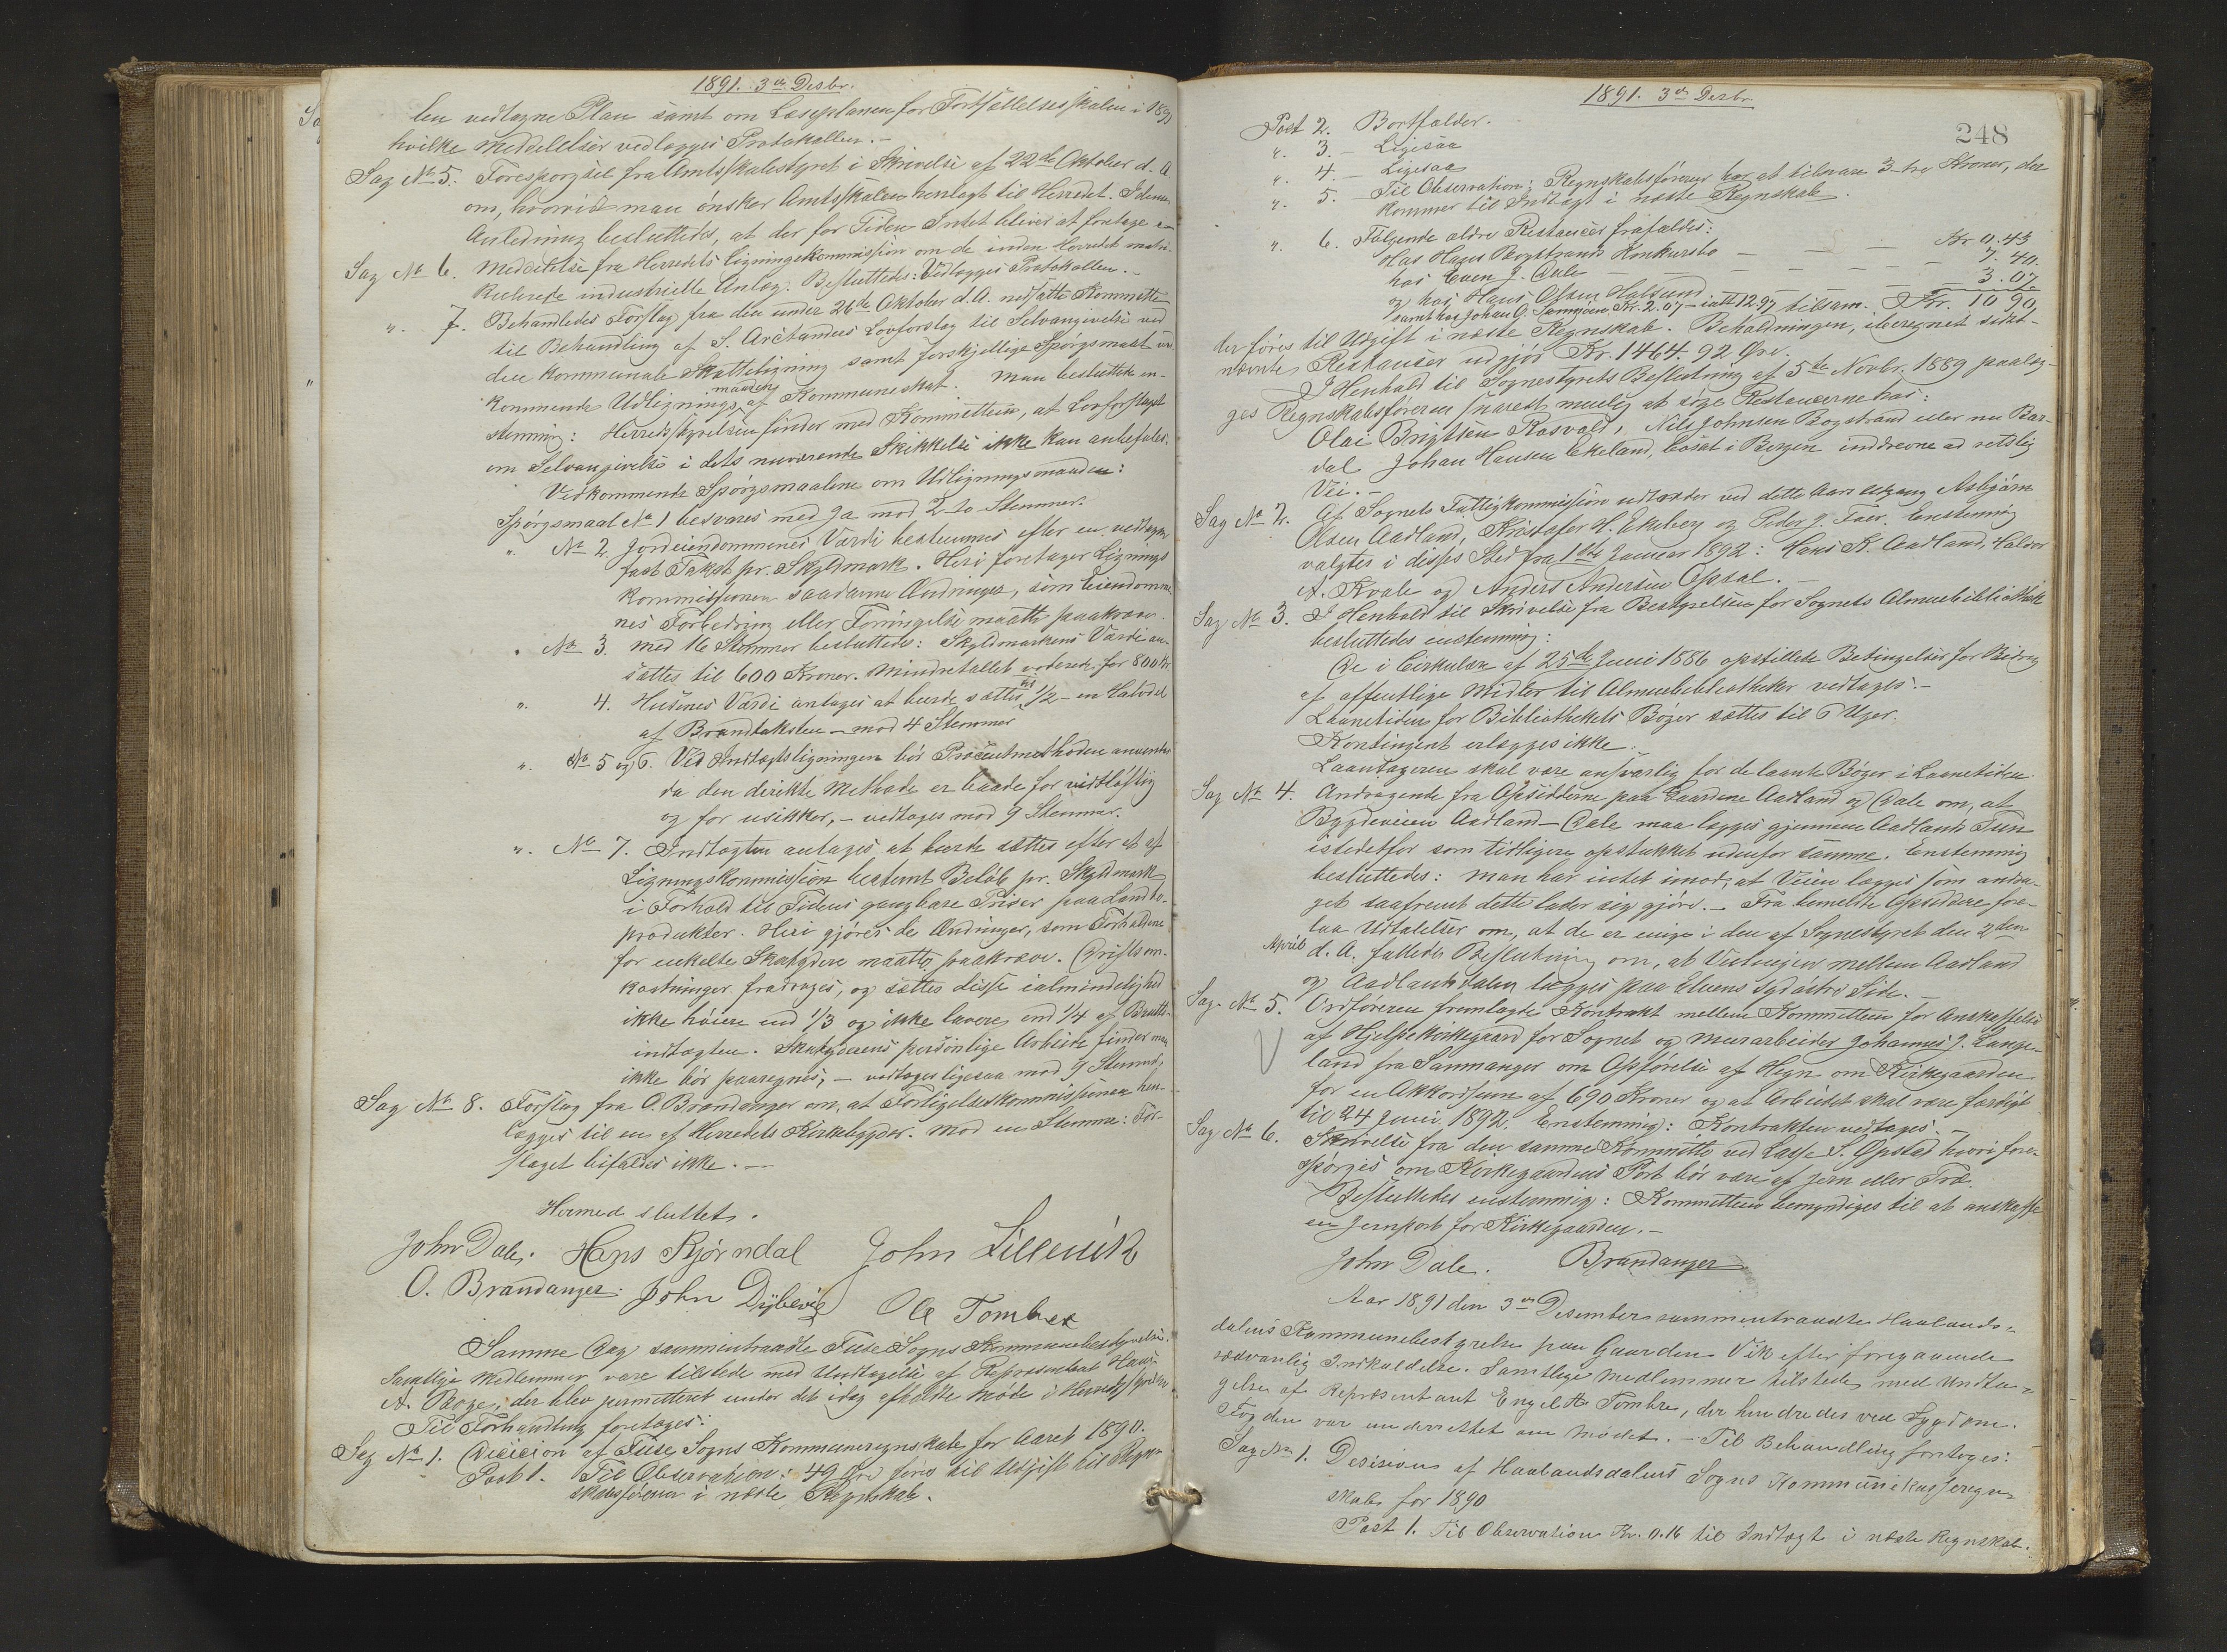 1891. 3die Desbr.
len vedtagne Plan samt om Læseplanen for Fortsættelsesskolen i 189
hvilke Meddelelser vedlægges Protokollen. –
Sag No 5. Forespørgsel fra Amtsskolestyret i Skrivelse af 22de Oktober d. A.
om, hvorvidt man ønsker Amtsskolen henlagt til Herredet. I denne
Anledning besluttedes, at der for Tiden Intet bliver at foretage
Sag No 6. Meddelelse fra Herredets Ligningskommission om de inden Herredet matri-
kulerede industrielle Anlæg. Besluttedes: Vedlægges Protokollen. –
". 7. Behandledes Forslag fra den under 26de Oktober d. A. nedsatte Kommitte
til Behandling af S. Arctanders Lovforslag til Selvangivelse ved
den kommunale Skatteligning samt forskjellige Spørgsmaal ved
kommende Udligningsmaaden af Kommuneskat. Man besluttede en-
stemmig: Herredsstyrelsen finder med Kommitteen, at Lovforslaget
om Selvangivelse i dets nuværende Skikkelse ikke kan anbefales.
Vedkommende Spørgsmaalene om Udligningsmaaden:
Spørgsmaal No 1 besvares med Ja mod 2 - to Stemmer.
". No 2. Jordeiendommenes Værdi bestemmes efter en vedtagen
fast Takst pr. Skyldmark. Heri foretager Lignings
kommissionen saadanne Ændringer, som Eiendomme-
nes Forbedring eller Forringelse maatte paakræve.
" No 3. Med 16 Stemmer besluttedes: Skyldmarkens Værdi an-
sættes til 600 Kroner. Mindretallet voterede for 800 Kr.
". 4. Husenes Værdi antages at burde sættes til 1/2 – en Halvdel
af Brandtaksten – mod 4 Stemmer
". No 5 og 6. Ved Indtægtsligningen bør Procentmethoden anvendes
da den direkte Methode er baade for vidtløftig
og for usikker, – vedtages mod 9 Stemmer.
". No 7. Indtægten antages at burde sættes efter et af
Ligningskommission bestemt Beløb pr. Skyldmark
i Forhold til Tidens gangbare Priser paa Landbo-
produkter. Heri gjøres de Ændringer, som Forholdene
for enkelte Skatydere maatte paakræve. Driftsom-
kostninger fradrages, og sættes disse i almindelighed
ikke høiere end 1/3 og ikke lavere end 1/4 af Brutto-
indtægten. Skatyderens personlige Arbeide finder man
ikke bør paaregnes; – vedtages ligesaa mod 9 Stemmer
Sag No 8. Forslag fra O. Brandanger om, at Forligelseskommissionen hen-
lægges til en af Herredets Kirkebygder. Mod en Stemme: For-
slaget bifaldes ikke. –
Hermed sluttet.
John Dale. Hans Kjørndal John Lillevik
O. Brandanger. John Dybevig Ole Tombre
Samme Dag sammentraadte Fuse Sogns Kommunebestyrelse.
Samtlige Medlemmer vare tilstede med Undtagelse af Repræsentant Hans
A. Boge, der blev permitteret under det idag afholdte Møde i Herredsstyrelsen
Til Forhandling foretoges:
Sag No 1. Decision af Fuse Sogns Kommuneregnskab for Aaret 1890.
Post 1. Til Observation: 49 Øre føres til Udgift hos Regn-
skabsføreren i næste Regnskab.
1891. 3die Desbr.
248
Post 2. Bortfalder.
". 3. – Ligesaa
". 4. – Ligesaa
". 5. – Til Observation; Regnskabsføreren har at tilsvare 3 – tre Kroner, der
kommer til Indtægt i næste Regnskab.
". 6. Følgende ældre Restancer frafaldes:
Hos Hans Bogstrands Konkursbo – – – Kr 0.43
hos Even J. Dale – – – – – 7.40.
og hos Hans Olsen Halsund – – – 3.07
samt hos Johan O. Samnøen Kr. 2.07 – ialt 12.97 tilsam. Kr. 10 90,
der føres til Udgift i næste Regnskab. Beholdningen, iberegnet sidst-
nævnte Restancer udgjør Kr. 1464.92 Øre.
I Henhold til Sognestyrets Beslutning af 5te Novbr. 1889 paalæg-
ges Regnskabsføreren snarest mulig at søge Restancerne hos:
Olai Brigtsen Rosvold, Nils Johnsen Bogstrand eller nu Bar-
dal Johan Hansen Ekeland, bosat i Bergen inddrevne ad retslig
Vei. –
Sag No 2. Af Sognets Fattigkommission udtræder ved dette Aars Udgang Asbjørn
Olsen Aadland, Kristofer H. Ekeberg og Peder J. Foer. Enstemmig
valgtes i disses Sted fra 1ste Januar 1892: Hans K. Aadland, Halvor
A. Kvale og Anders Andersen Opsal. –
Sag No 3. I Henhold til Skrivelse fra Bestyrelsen for Sognets Almuebibliothek
besluttedes enstemmig:
De i Cirkulær af 25de Juni 1886 opstillede Betingelser for Bidrag
af offentlige Midler til Almuebibliotheker vedtages. –
Laanetiden for Bibliothekets Bøger sættes til 6 Uger.
Kontingent erlægges ikke.
Laantageren skal være ansvarlig for de laante Bøger i Laanetiden.
Sag No 4. Andragende fra Opsidderne paa Gaardene Aadland og Dale om, at
Bygdeveien Aadland – Dale maa lægges gjennem Aadlands Tun
istedetfor som tidligere opstukket udenfor samme. Enstemmig
besluttedes: Man har intet imod, at Veien lægges som andra-
get saafremt dette lader sig gjøre. – Fra bemeldte Opsiddere fore-
laa Udtalelser om, at de er enige i den af Sognestyret den 2den
April d. A. fattede Beslutning om, at Veilinjen mellem Aadland
og Aadlandsdalen lægges paa Elvens sydøstre Side. –
Sag No 5. Ordføreren fremlagde Kontrakt mellem Kommitteen for Anskaffelse
V af Hjelpekirkegaard for Sognet og Murarbeider Johannes J. Lange-
land fra Samnanger om Opførelse af Hegn om Kirkegaarden
for en Akkordsum af 690 Kroner og at Arbeidet skal være færdigt
til 24 Juni 1892. Enstemmig: Kontrakten vedtages.
Sag No 6. Skrivelse fra den samme Kommitte ved Lasse S. Opstad hvori fore-
spørges om Kirkegaardens Port bør være af Jern eller Træ.
Besluttedes enstemmig: Kommitteen bemyndiges til at anskaffe
en Jernport for Kirkegaarden. –
John Dale. Brandanger
Aar 1891 den 3die Desember sammentraadte Haalands-
dalens Kommunebestyrelse paa Gaarden Vik efter foregaaende
sædvanlig Indkaldelse. Samtlige Medlemmer tilstede, med Undta-
gelse af Repræsentant Engel H. Tombre, der hindredes ved Sygdom.
Fogden var underrettet om Mødet. – Til Behandling foretoges:
Sag No 1. Desision af Haalandsdalens Sogns Kommunekasseregn-
skab for 1890
Post 1. Til Observation Kr. 0.16 til Indtægt i næste Regnskab.